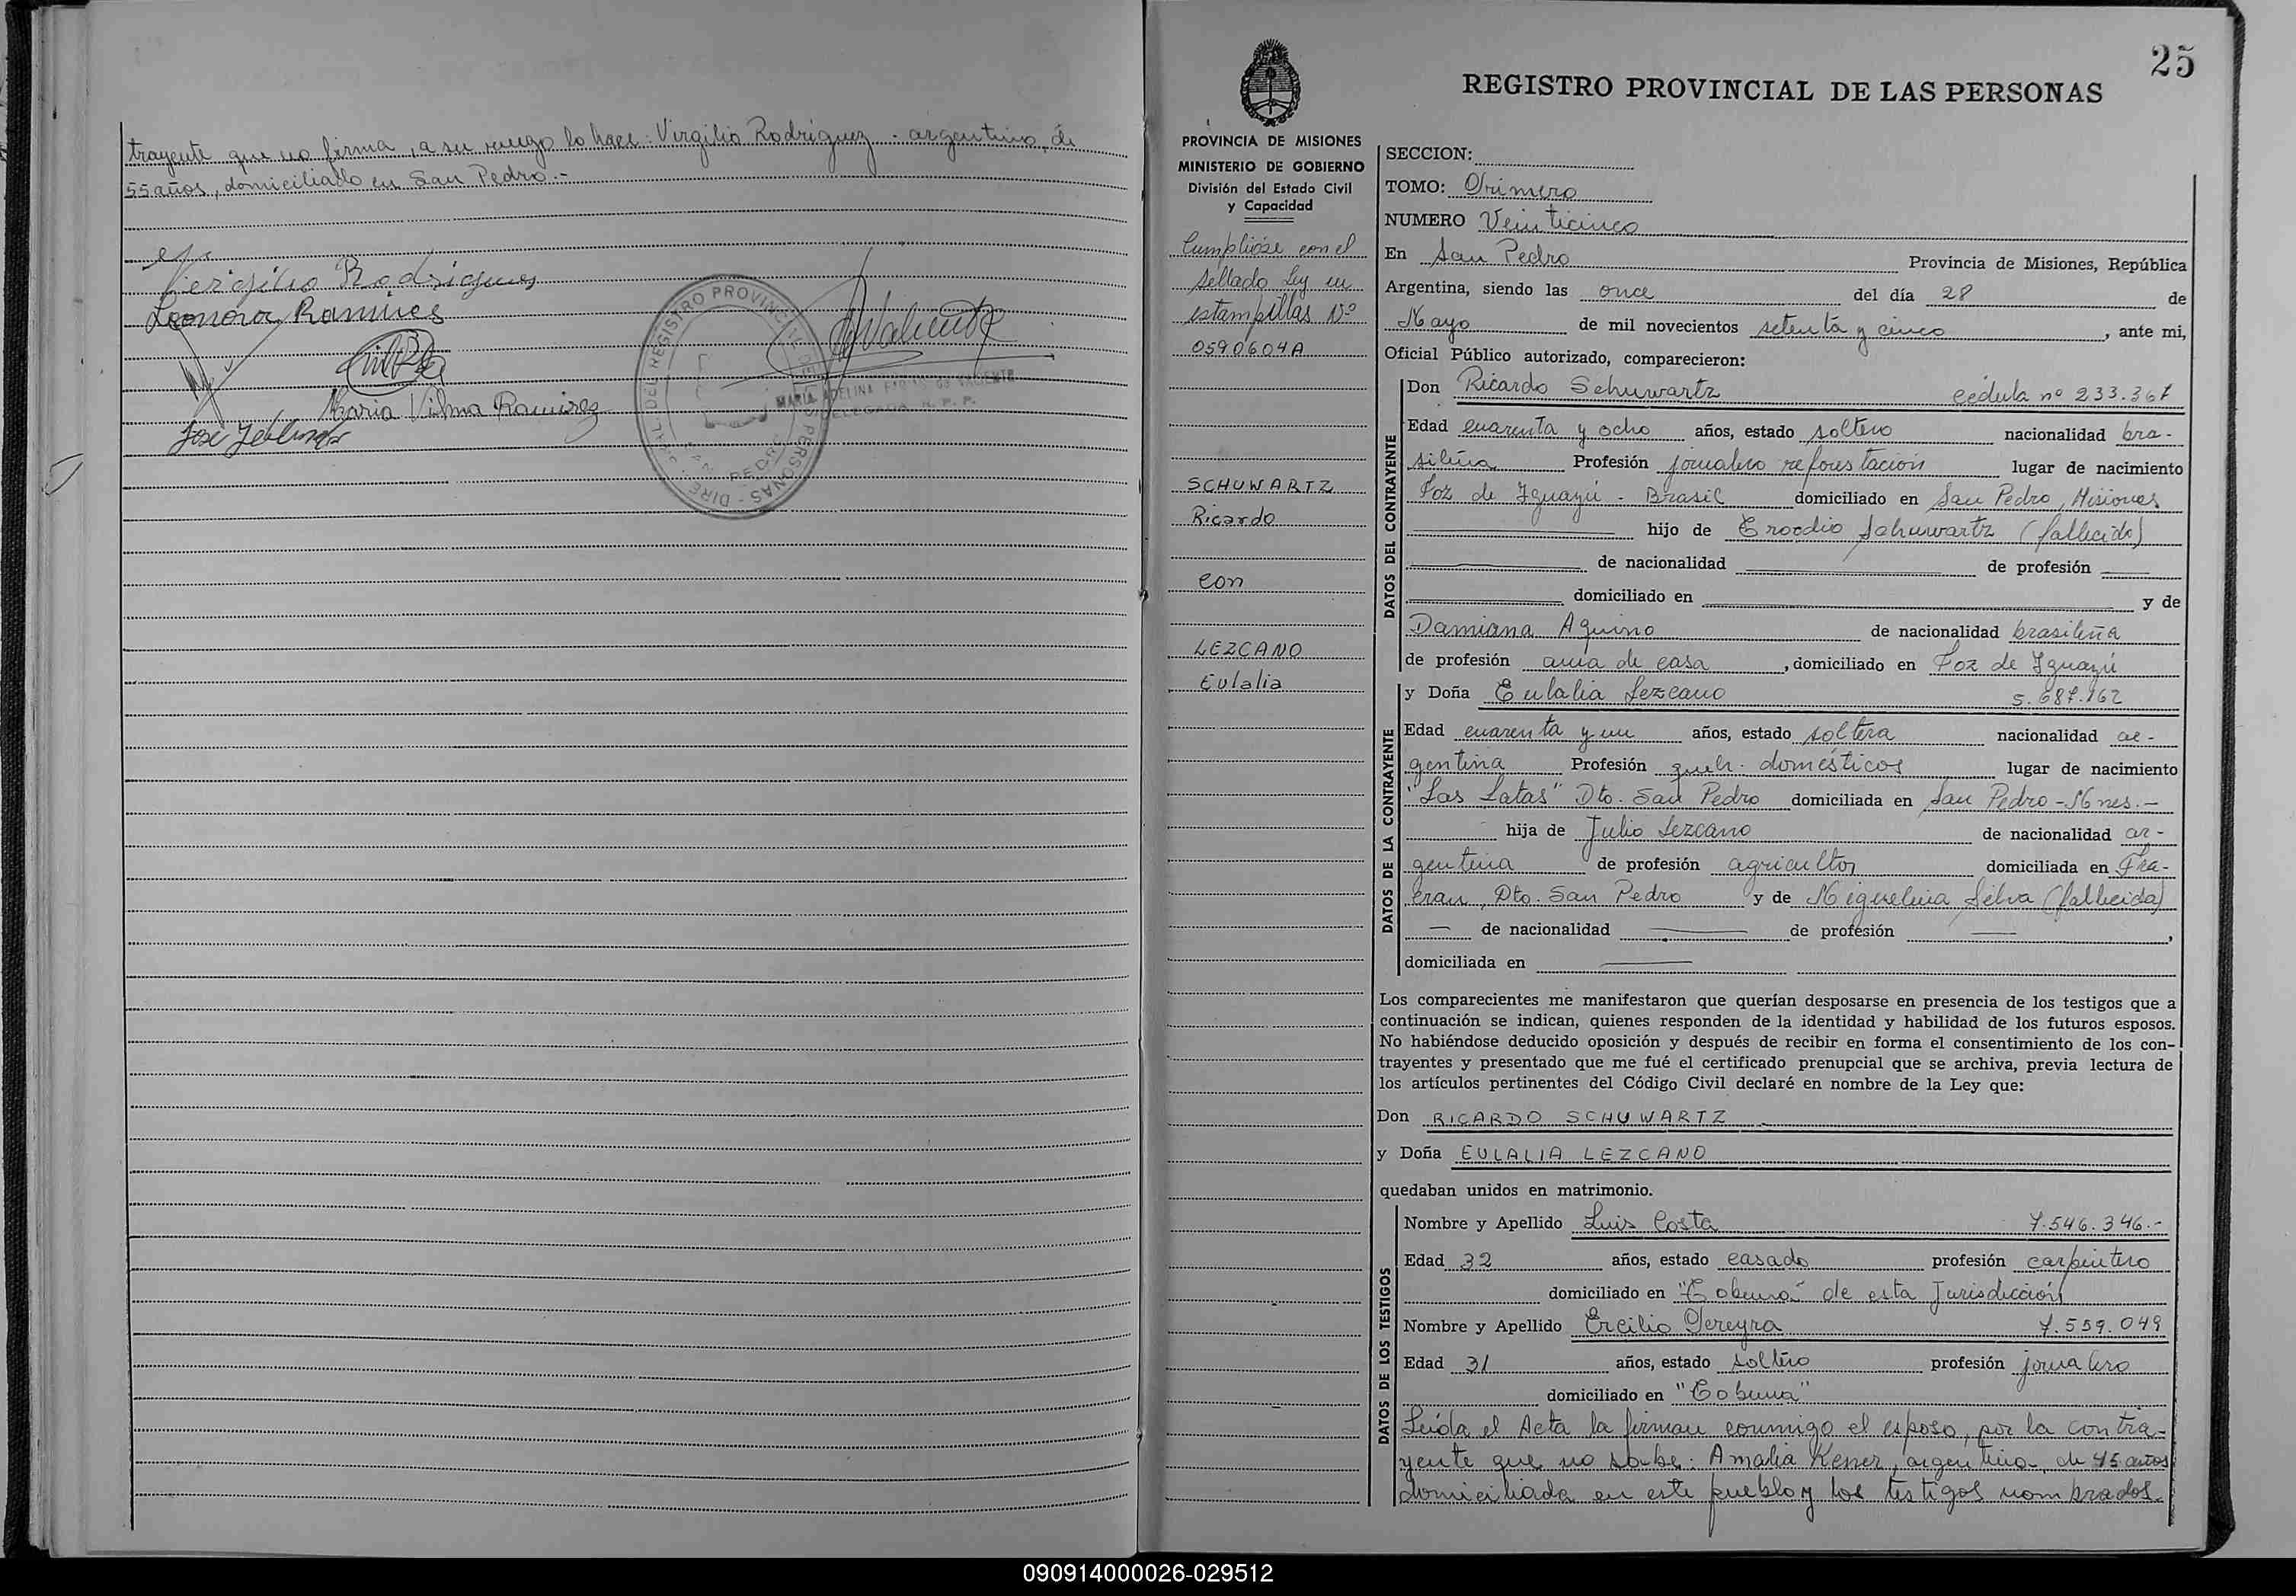 trayente que no firma, a su ruego lo hace: Virgilio Rodriguez - argentino, de
55 años, domiciliado en San Pedro.-
Vergilio Rodrigues
Leonora Ramires
Maria Vilma Ramirez
José
DEL REGISTRO PROVINCIAL DE LAS PERSONAS - DIRE
SAN PEDRO
MARIA ADELINA FARIAS de VALIENTE
DELEGADA R. P. P.
25
REGISTRO PROVINCIAL DE LAS PERSONAS
PROVINCIA DE MISIONES
MINISTERIO DE GOBIERNO
División del Estado Civil
y Capacidad
Cumplióse con el
sellado Ley en
estampillas Nº
0590604A
SCHUWARTZ
Ricardo
con
LEZCANO
Eulalia
SECCION:
TOMO: Primero
NUMERO Veinticinco
En San Pedro Provincia de Misiones, República
Argentina, siendo las once del día 28 de
Mayo de mil novecientos setenta y cinco, ante mi,
Oficial Público autorizado, comparecieron:
DATOS DEL CONTRAYENTE
Don Ricardo Schuwartz cédula nº 233.367
Edad cuarenta y ocho años, estado soltero nacionalidad bra-
sileña Profesión jornalero reforestación lugar de nacimiento
Foz de Iguazú - Brasil domiciliado en San Pedro, Misiones
hijo de Erocdio Schuwartz (fallecido)
de nacionalidad de profesión
domiciliado en y de
Damiana Aquino de nacionalidad brasileña
de profesión ama de casa, domiciliado en Foz de Iguazú
DATOS DE LA CONTRAYENTE
y Doña Eulalia Lezcano 5.687.162
Edad cuarenta y un años, estado soltera nacionalidad ar-
gentina Profesión queh. domésticos lugar de nacimiento
"Las Latas" Dto. San Pedro domiciliada en San Pedro - Mnes.-
hija de Julio Lezcano de nacionalidad ar-
gentina de profesión agricultor domiciliada en Fra-
cran, Dto. San Pedro y de Miguelina Silva (fallecida)
— de nacionalidad — de profesión —,
domiciliada en —
Los comparecientes me manifestaron que querían desposarse en presencia de los testigos que a
continuación se indican, quienes responden de la identidad y habilidad de los futuros esposos.
No habiéndose deducido oposición y después de recibir en forma el consentimiento de los con-
trayentes y presentado que me fué el certificado prenupcial que se archiva, previa lectura de
los artículos pertinentes del Código Civil declaré en nombre de la Ley que:
Don RICARDO SCHUWARTZ
y Doña EULALIA LEZCANO
quedaban unidos en matrimonio.
DATOS DE LOS TESTIGOS
Nombre y Apellido Luis Costa 7.546.346.-
Edad 32 años, estado casado profesión carpintero
domiciliado en "Tobuna" de esta Jurisdicción
Nombre y Apellido Ercilio Pereyra 7.559.049
Edad 31 años, estado soltero profesión jornalero
domiciliado en "Tobuna"
Leída el Acta la firman conmigo el esposo, por la contra-
yente que no sabe: Amalia Kener, argentina, de 45 años
domiciliada en este pueblo y los testigos nombrados.
090914000026-029512